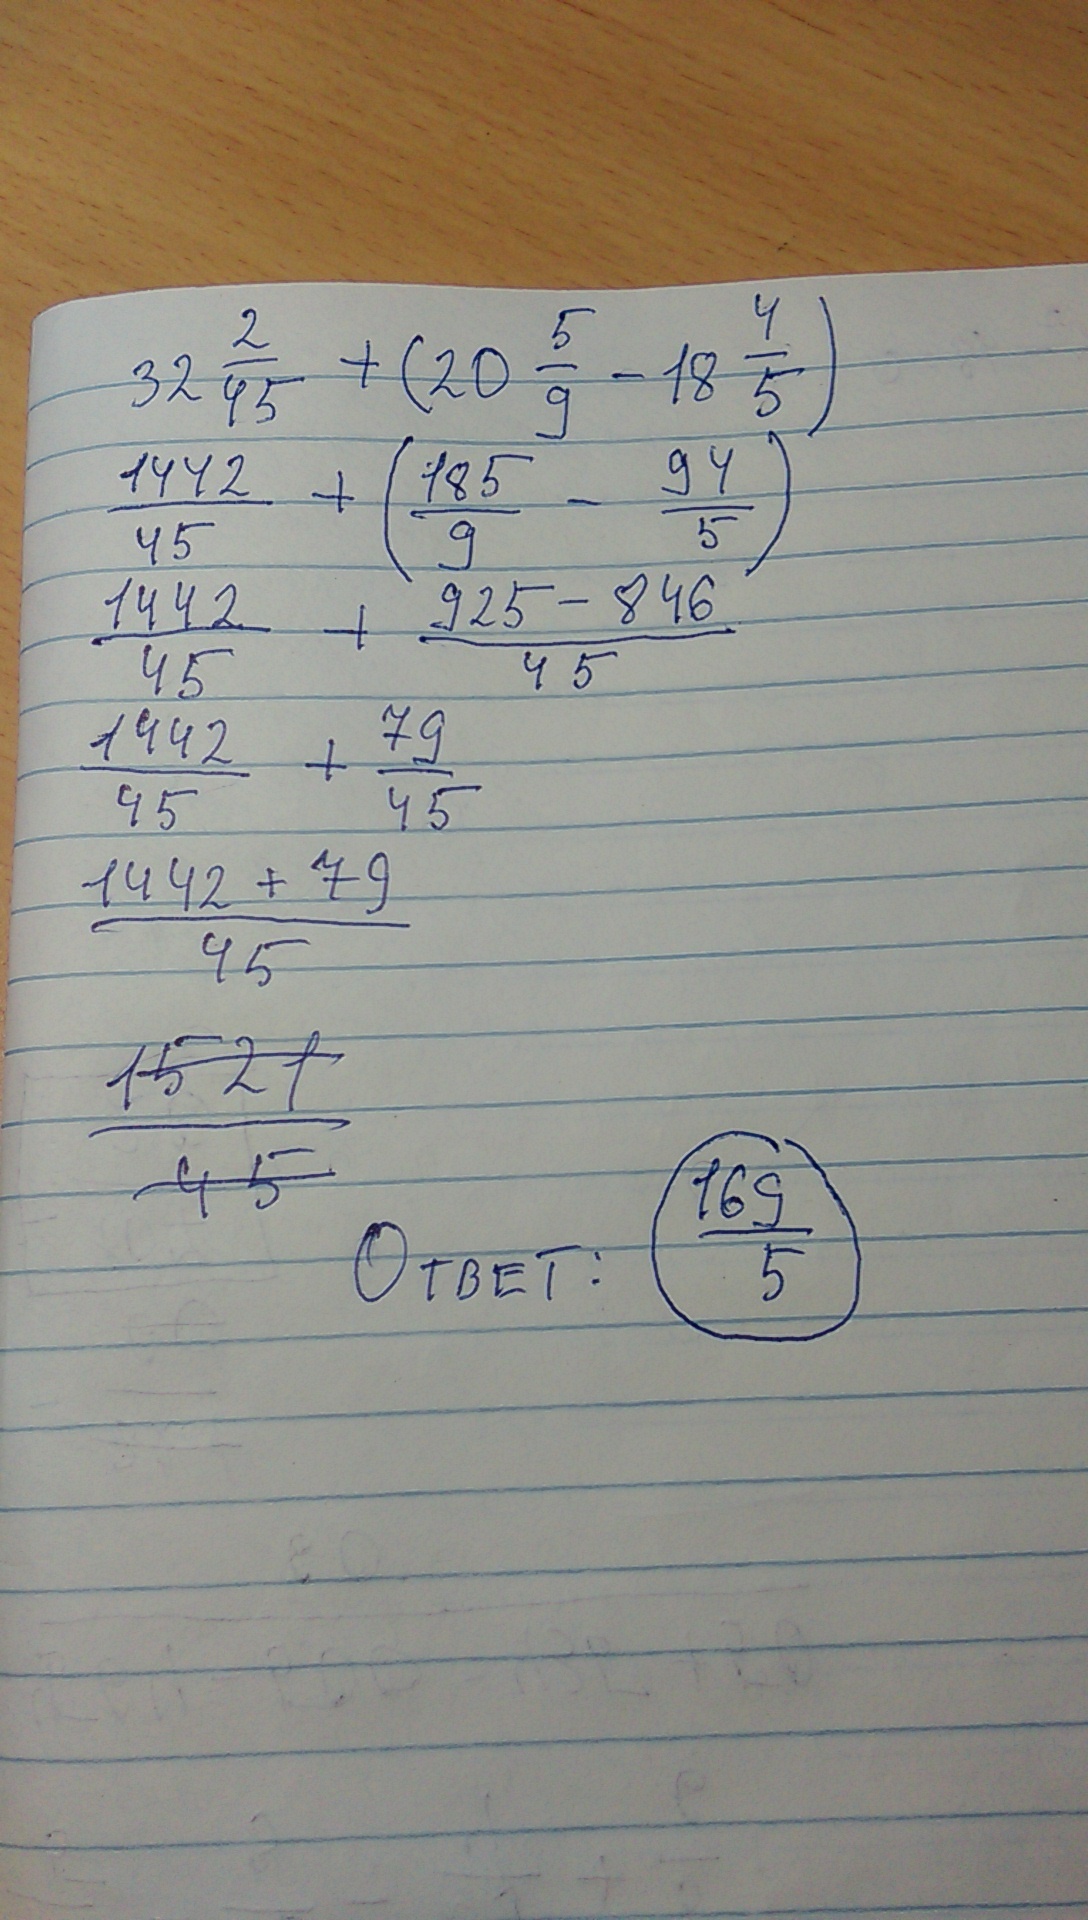 32 2/45 + (20 5/9 - 18 4/5)
1442/45 + (185/9 - 94/5)
1442/45 + (925 - 846)/45
1442/45 + 79/45
(1442 + 79)/45
1521/45
Ответ: 169/5